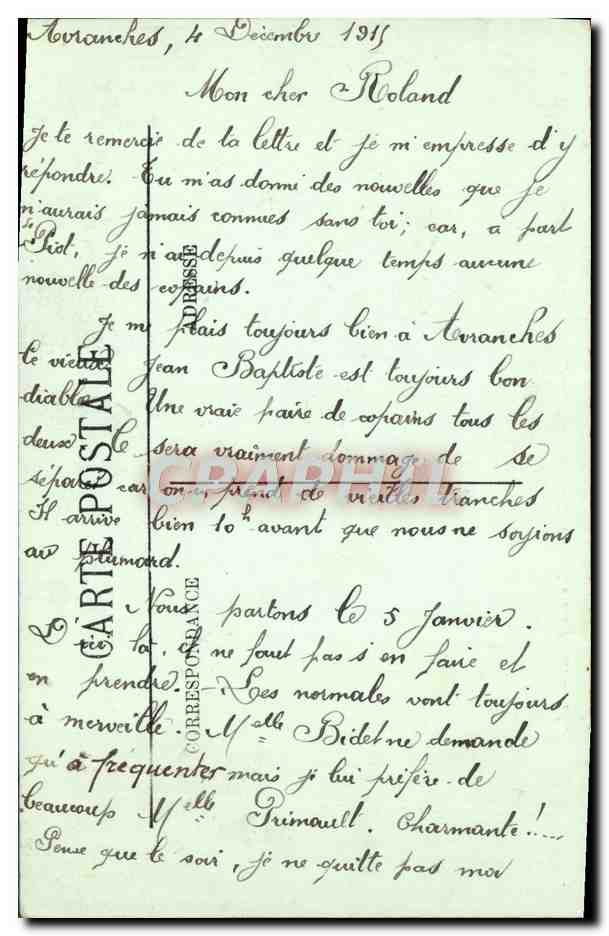 Avranches, 4 Décembre 1915
Mon cher Roland
Je te remercie de ta lettre et je m'empresse d'y
répondre. Tu m'as donné des nouvelles que je
n'aurais jamais connues sans toi; car, a part
Piot, je n'ai depuis quelque temps aucune
nouvelle des copains.
Je me plais toujours bien à Avranches
le vieux Jean Baptiste est toujours bon
diable. Une vraie paire de copains tous les
deux. Ce sera vraiment dommage de se
séparer car on y prend de vieilles tranches
Il arrive bien 10h avant que nous ne soyions
au plumard.
Nous partons le 5 Janvier.
D'ici là, il ne faut pas s'en faire et
en prendre. - Les normales vont toujours
à merveille. Melle Bidet ne demande
qu'à fréquenter mais je lui préfère de
beaucoup Melle Primault. Charmante!....
Pense que le soir, je ne quitte pas ma
CARTE POSTALE
CORRESPONDANCE
ADRESSE
CPAPHIL